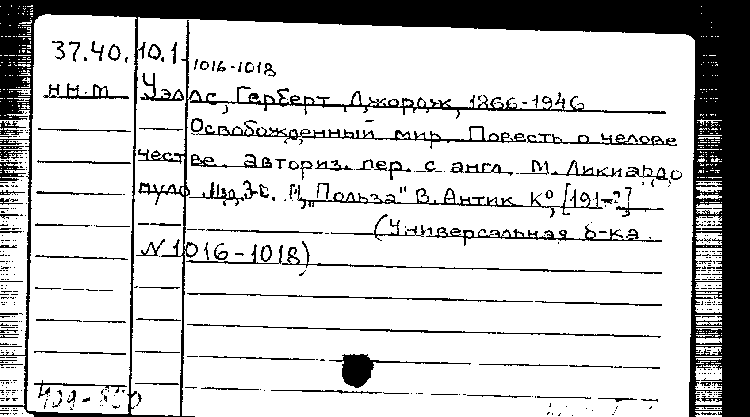 37.40.10.1
1016-1018
нн.т Уэллс, Герберт Джордж, 1866-1946
Освобожденный мир. Повесть о челове
честве. Авториз. пер. с англ. М. Ликиардо
пуло. Изд. 3-е. М., „Польза" В. Антик К°, [191-?]
(Универсальная б-ка.
N 1016-1018)